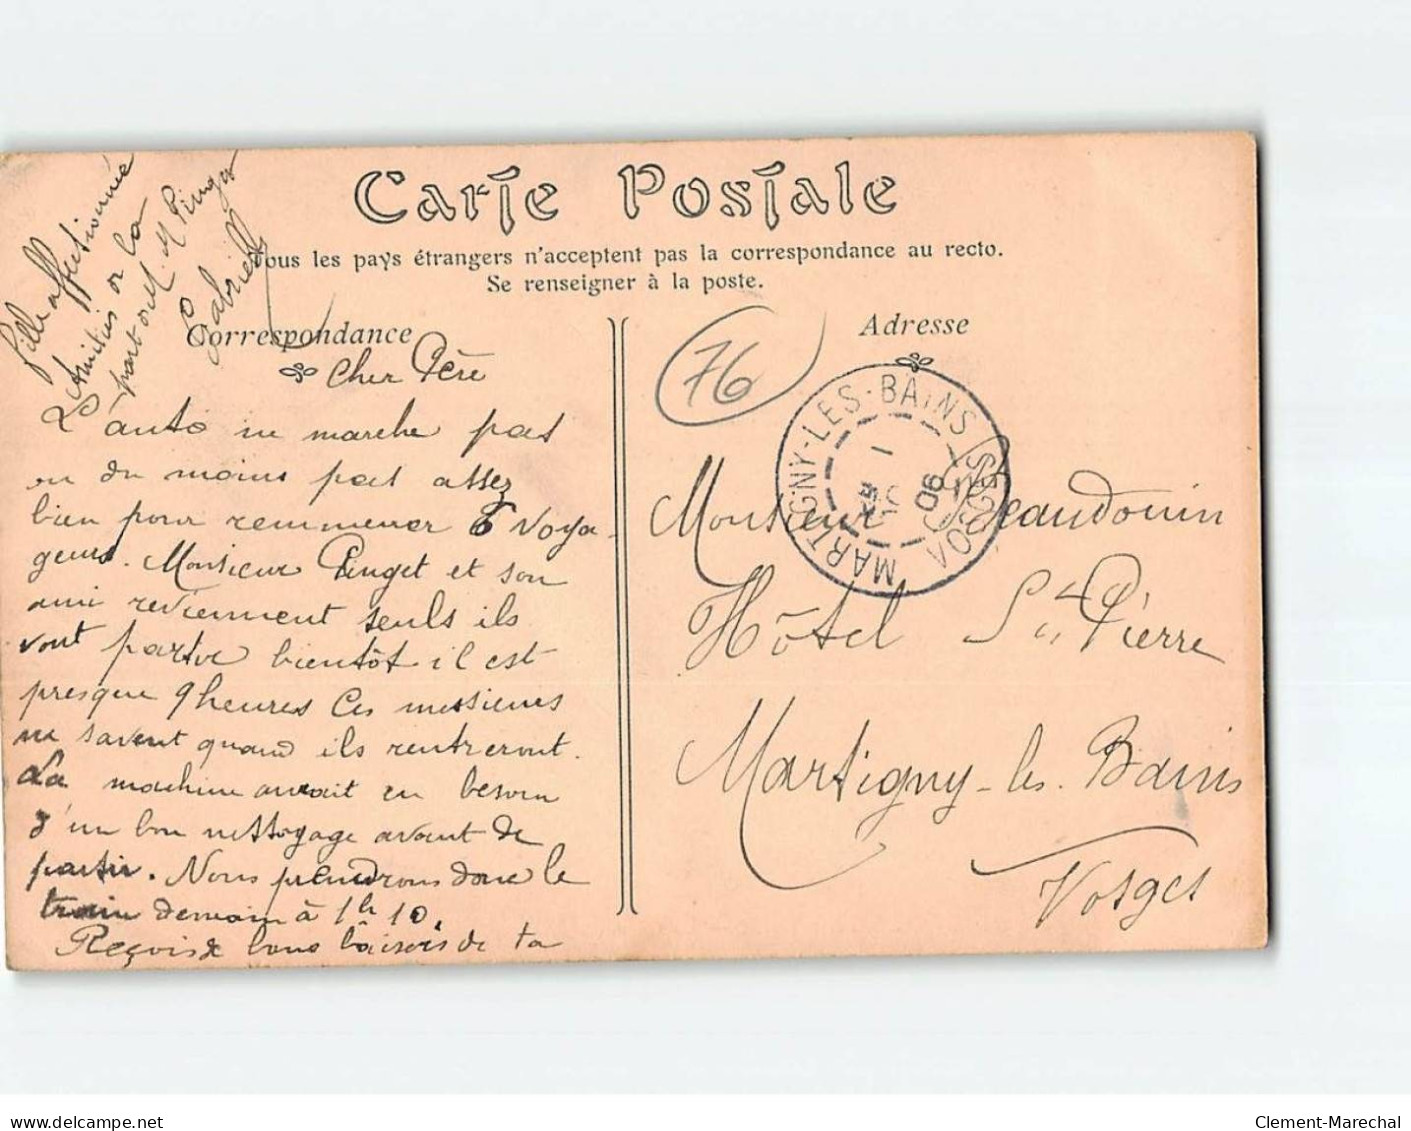 Carte Postale
Tous les pays étrangers n'acceptent pas la correspondance au recto.
Se renseigner à la poste.
Correspondance
Adresse
Cher Père
L'auto ne marche pas
ou du moins pas assez
bien pour remmener 6 voya-
geurs. Monsieur Pinget et son
ami reviennent seuls ils
vont partir bientôt il est
presque 9 heures Ces messieurs
ne savent quand ils rentreront.
La machine aurait eu besoin
d'un bon nettoyage avant de
partir. Nous prendrons donc le
train demain à 1h 10.
Reçois de bons baisers de ta
fille affectionnée
Amitiés de la
part de M. Pinget
Gabrielle
76
MARTIGNY-LES-BAINS
VOSGES
1
06
Monsieur Beaudouin
Hôtel St Pierre
Martigny-les-Bains
Vosges
www.delcampe.net
Clement-Marechal